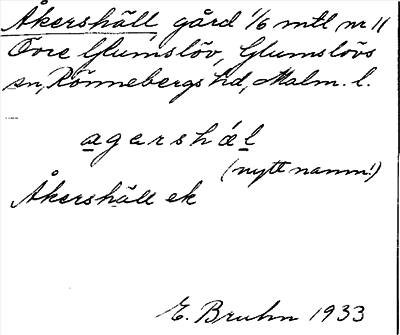 Åkershäll gård 1/6 mtl nr 11
Övre Glumslöv, Glumslövs
sn, Rönnebergs hd, Malm. l.
agershäl
(nytt namn!)
Åkershäll ek
E. Bruhn 1933